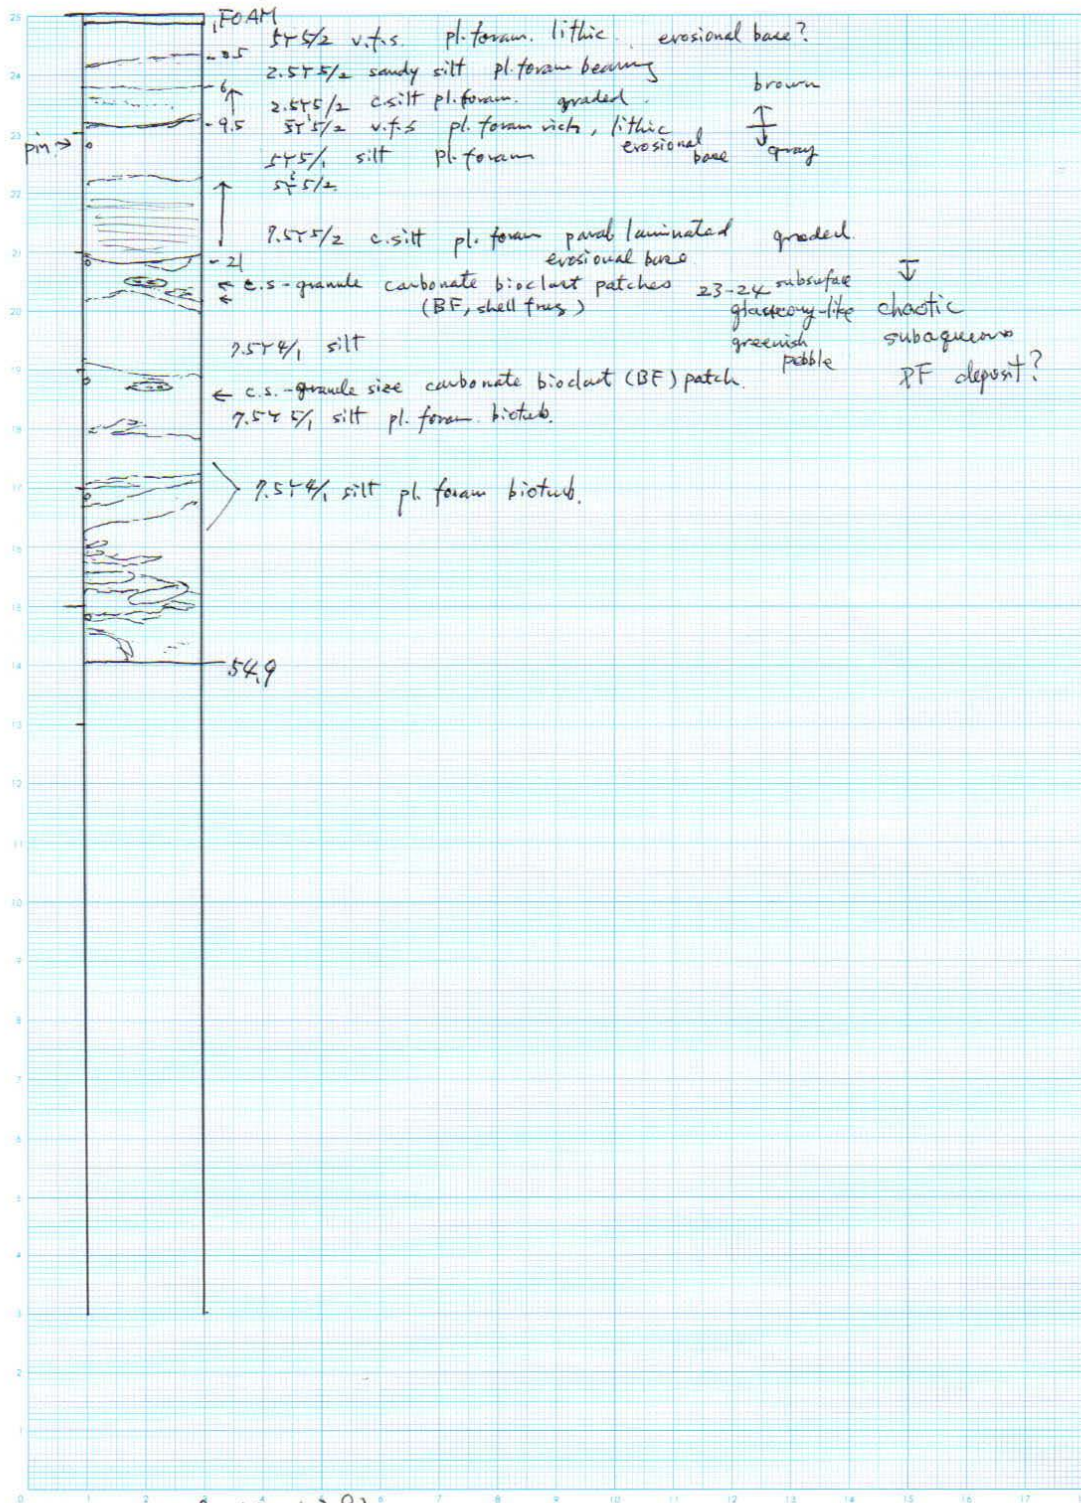 FOAM
5Y 5/2 v.f.s. pl. foram. lithic. erosional base?
2.5Y 5/2 sandy silt pl. foram bearing
6
2.5Y 5/2 c.silt pl. foram. graded. brown
9.5 5Y 5/2 v.f.s pl. foram rich, lithic
erosional base gray
pin →
5Y 5/1 silt pl. foram
5Y 5/2
7.5Y 5/2 c.silt pl. foram paral laminated graded.
erosional base
21
← c.s-granule carbonate bioclast patches 23-24 subsurface
(BF, shell frag) glaucony-like chaotic
7.5Y 4/1 silt greenish subaqueous
pebble
PF deposit?
← c.s.-granule size carbonate bioclast (BF) patch.
7.5Y 5/1 silt pl. foram. bioturb.
7.5Y 4/1 silt pl. foram bioturb.
54.9
25
24
23
22
21
20
19
18
17
16
15
14
13
12
11
10
9
8
7
6
5
4
3
2
1
0 1 2 3 4 5 6 7 8 9 10 11 12 13 14 15 16 17